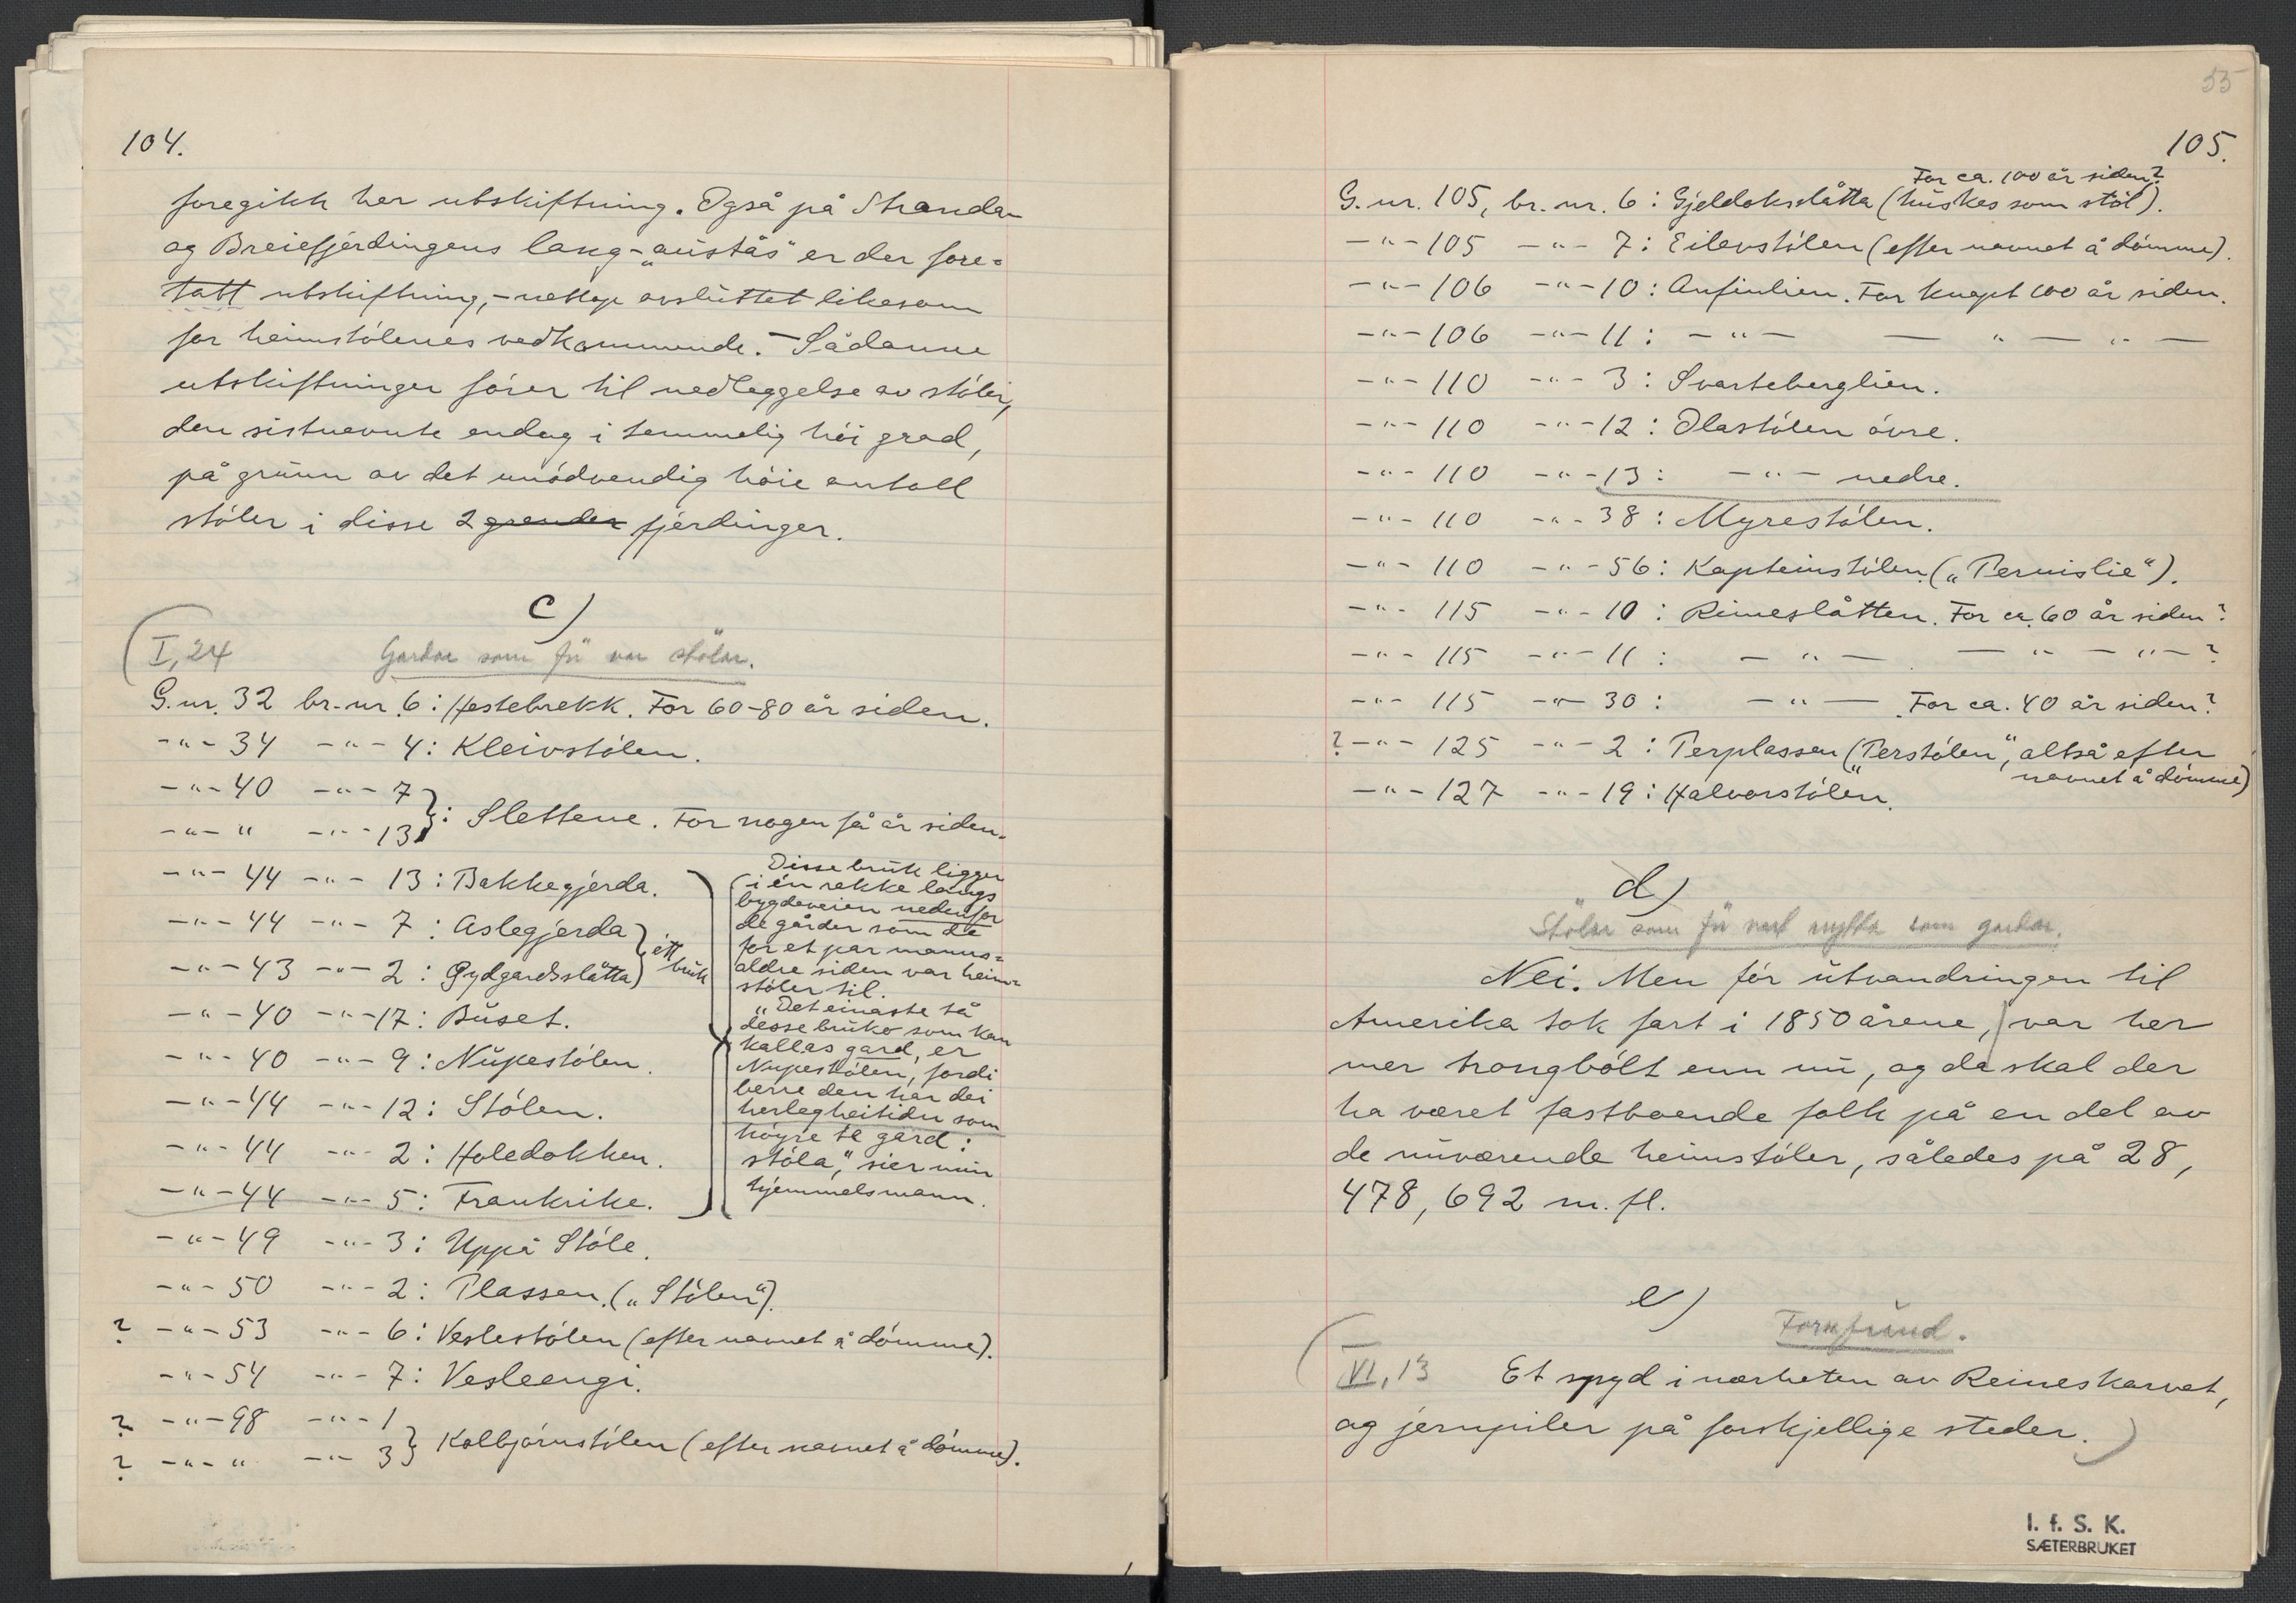 104.
foregikk her utskiftning. Også på Strandar
og Breiefjerdingens lang-„austås“ er der fore-
tatt utskiftning, – nettop avsluttet likesom
for heimstölenes vedkommende. – Sådanne
utskiftninger förer til nedleggelse av stöler,
den sistnevnte endog i temmelig höi grad,
på grunn av det unödvendig höie antall
stöler i disse 2 grender fjerdinger.
c)
I, 24 Gardar som fü var stölar.
G.nr. 32 br.-nr. 6: Hestebrekk. For 60-80 år siden.
-„- 34 -„- 4: Kleivstölen.
-„- 40 -„- 7
-„- „ -„- 13 }: Slettene. For nogen få år siden.
-„- 44 -„- 13: Bakkegjerda.
-„- 44 -„- 7: Aslegjerda } ett
-„- 43 -„- 2: Gydgardsslåtta } bruk
-„- 40 -„- 17: Buset.
-„- 40 -„- 9: Nupestölen.
-„- 44 -„- 12: Stölen.
-„- 44 -„- 2: Holedokken.
-„- 44 -„- 5: Frankrike.
Disse bruk ligger
i én rekke langs
bygdeveien nedenfor
de gårder som de
for et par manns-
aldre siden var heim-
stöler til.
„Det einaste tå
desse bruko som kan
kallas gard, er
Nupestölen, fordi
berre den har dei
herlegheitidn som
höyre te gard:
stöla,“ sier min
hjemmelsmann.
-„- 49 -„- 3: Uppå Stöle.
-„- 50 -„- 2: Plassen. („Stölen“).
? -„- 53 -„- 6: Veslestölen (efter navnet å dömme).
-„- 54 -„- 7: Vesleengi.
? -„- 98 -„- 1
? -„- „ -„- 3 } Kolbjörnstölen (efter navnet å dömme).
55
105.
For ca. 100 år siden?
G.nr. 105, br.nr. 6: Gjeldokslåtta (huskes som stöl).
-„- 105 -„- 7: Eilevstölen (efter navnet å dömme).
-„- 106 -„- 10: Anfinlien. For knapt 100 år siden.
-„- 106 -„- 11: -„- — „ — „ —
-„- 110 -„- 3: Svarteberglien.
-„- 110 -„- 12: Olastölen övre.
-„- 110 -„- 13: -„- nedre.
-„- 110 -„- 38: Myrestölen.
-„- 110 -„- 56: Kapteinstölen („Pernislie“).
-„- 115 -„- 10: Rimeslåtten. For ca. 60 år siden?
-„- 115 -„- 11: -„- . — „ — „ — ?
-„- 115 -„- 30: -„- . For ca. 40 år siden?
? -„- 125 -„- 2: Perplassen („Perstölen“, altså efter
navnet å dömme)
-„- 127 -„- 19: Halvorstölen.
d)
Stölar som fü vart nytta som gardar.
Nei. Men för utvandringen til
Amerika tok fart i 1850 årene, var her
mer trongbölt enn nu, og da skal der
ha været fastboende folk på en del av
de nuværende heimstöler, således på 28,
478, 692 m. fl.
e)
Fornfund.
VI, 13 Et spyd i nærheten av Reineskarvet,
og jernpiler på forskjellige steder.
I. f. S. K.
SÆTERBRUKET